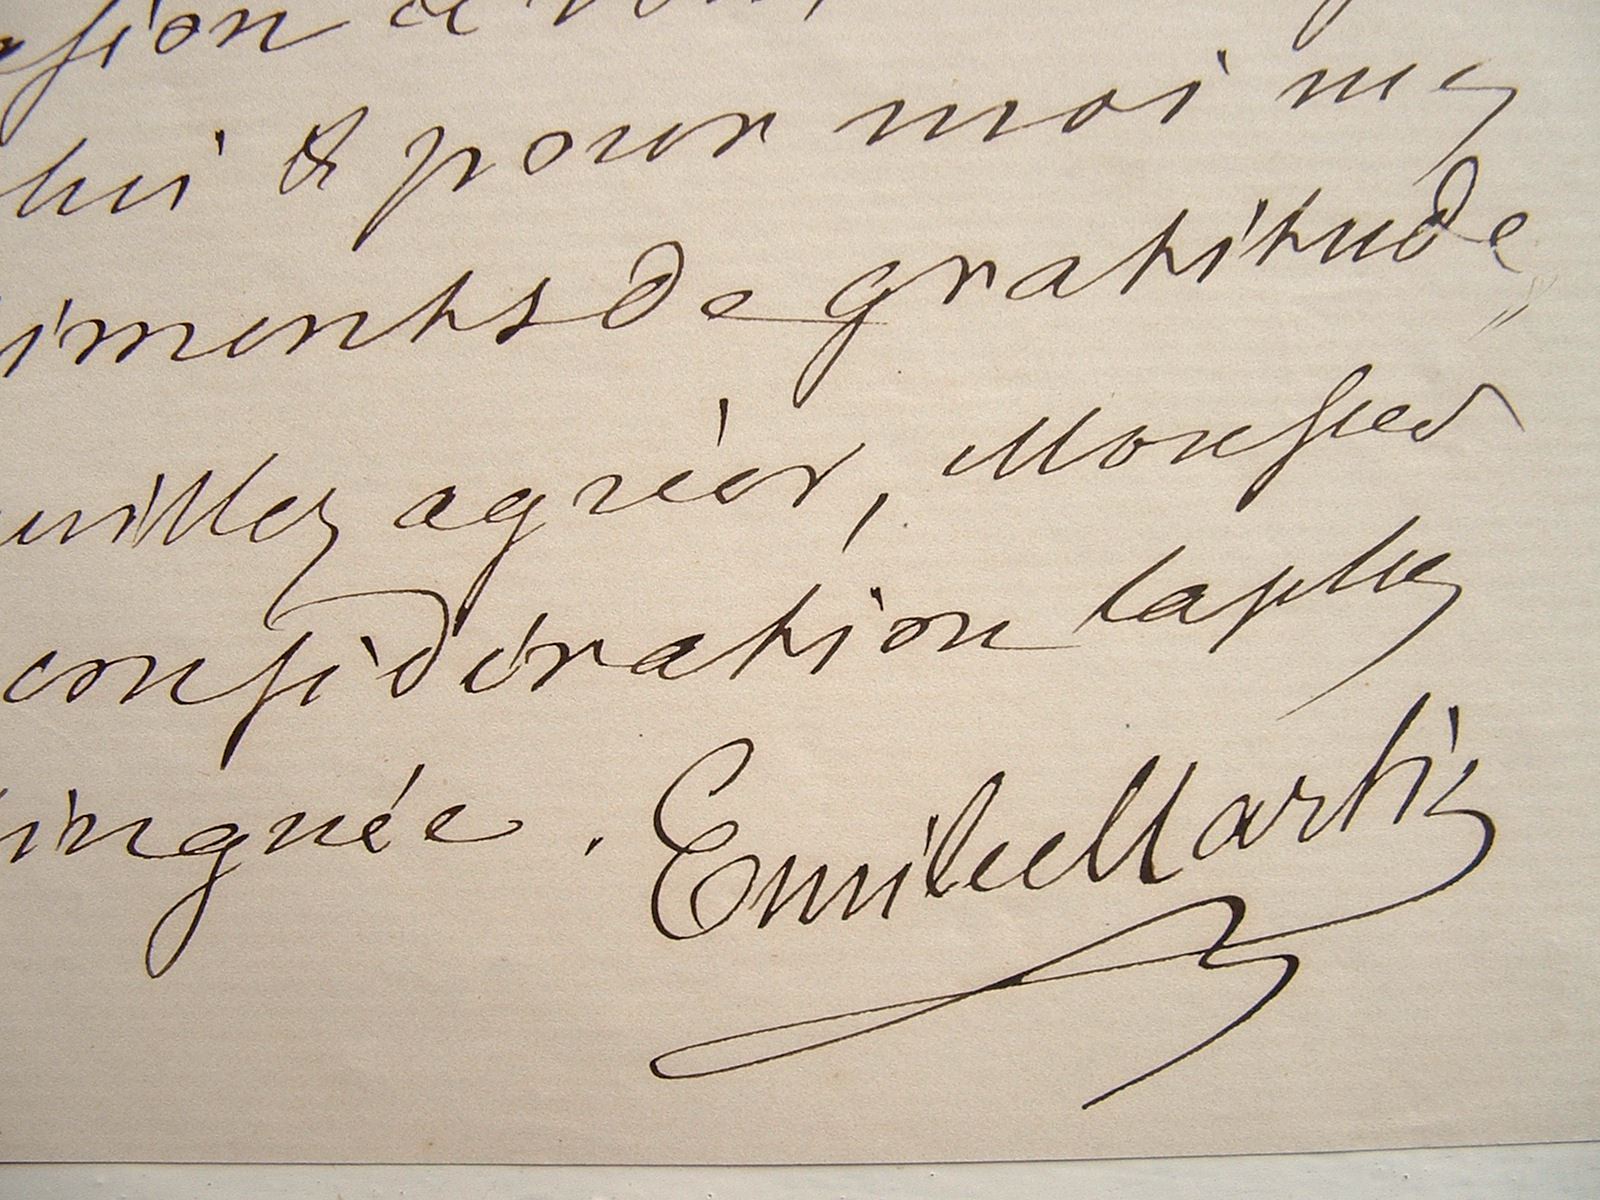 lui & pour moi mes
iments de gratitude
uillez agréer, Monsieur
considération la plus
inguée. Emile Martin